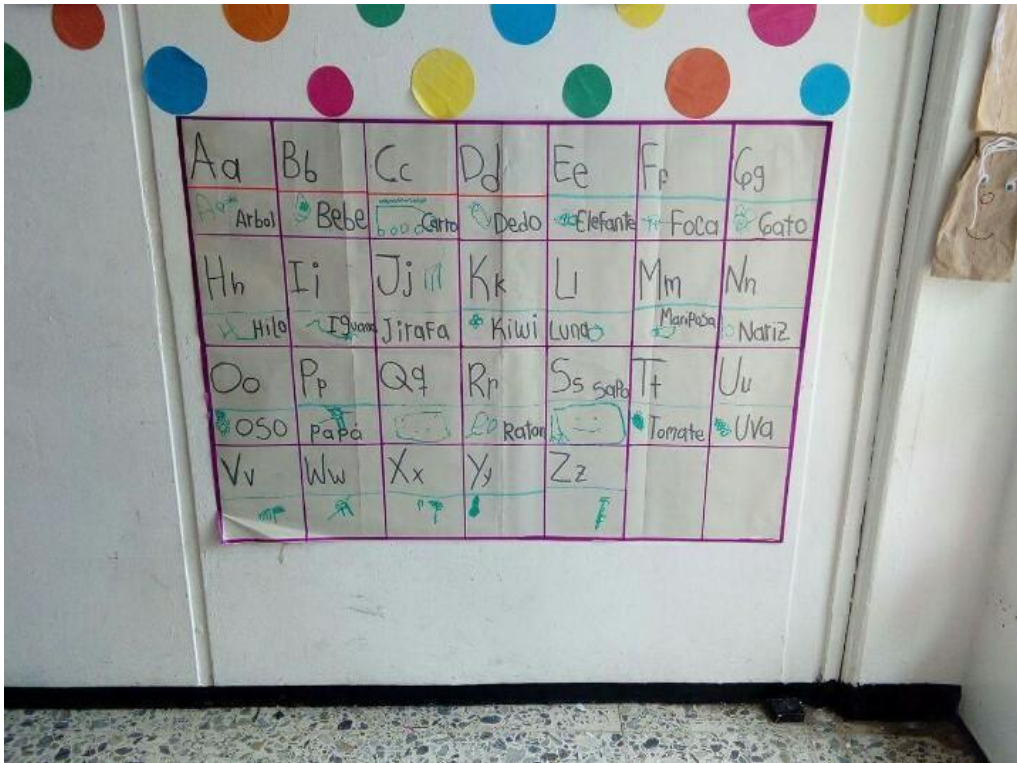 Aa Bb Cc Dd Ee Ff Gg
Arbol Bebe Carro Dedo Elefante Foca Gato
Hh Ii Jj Kk Ll Mm Nn
Hilo Iguana Jirafa Kiwi Luna Mariposa Nariz
Oo Pp Qq Rr Ss sapo Tt Uu
oso papá Raton Tomate Uva
Vv Ww Xx Yy Zz